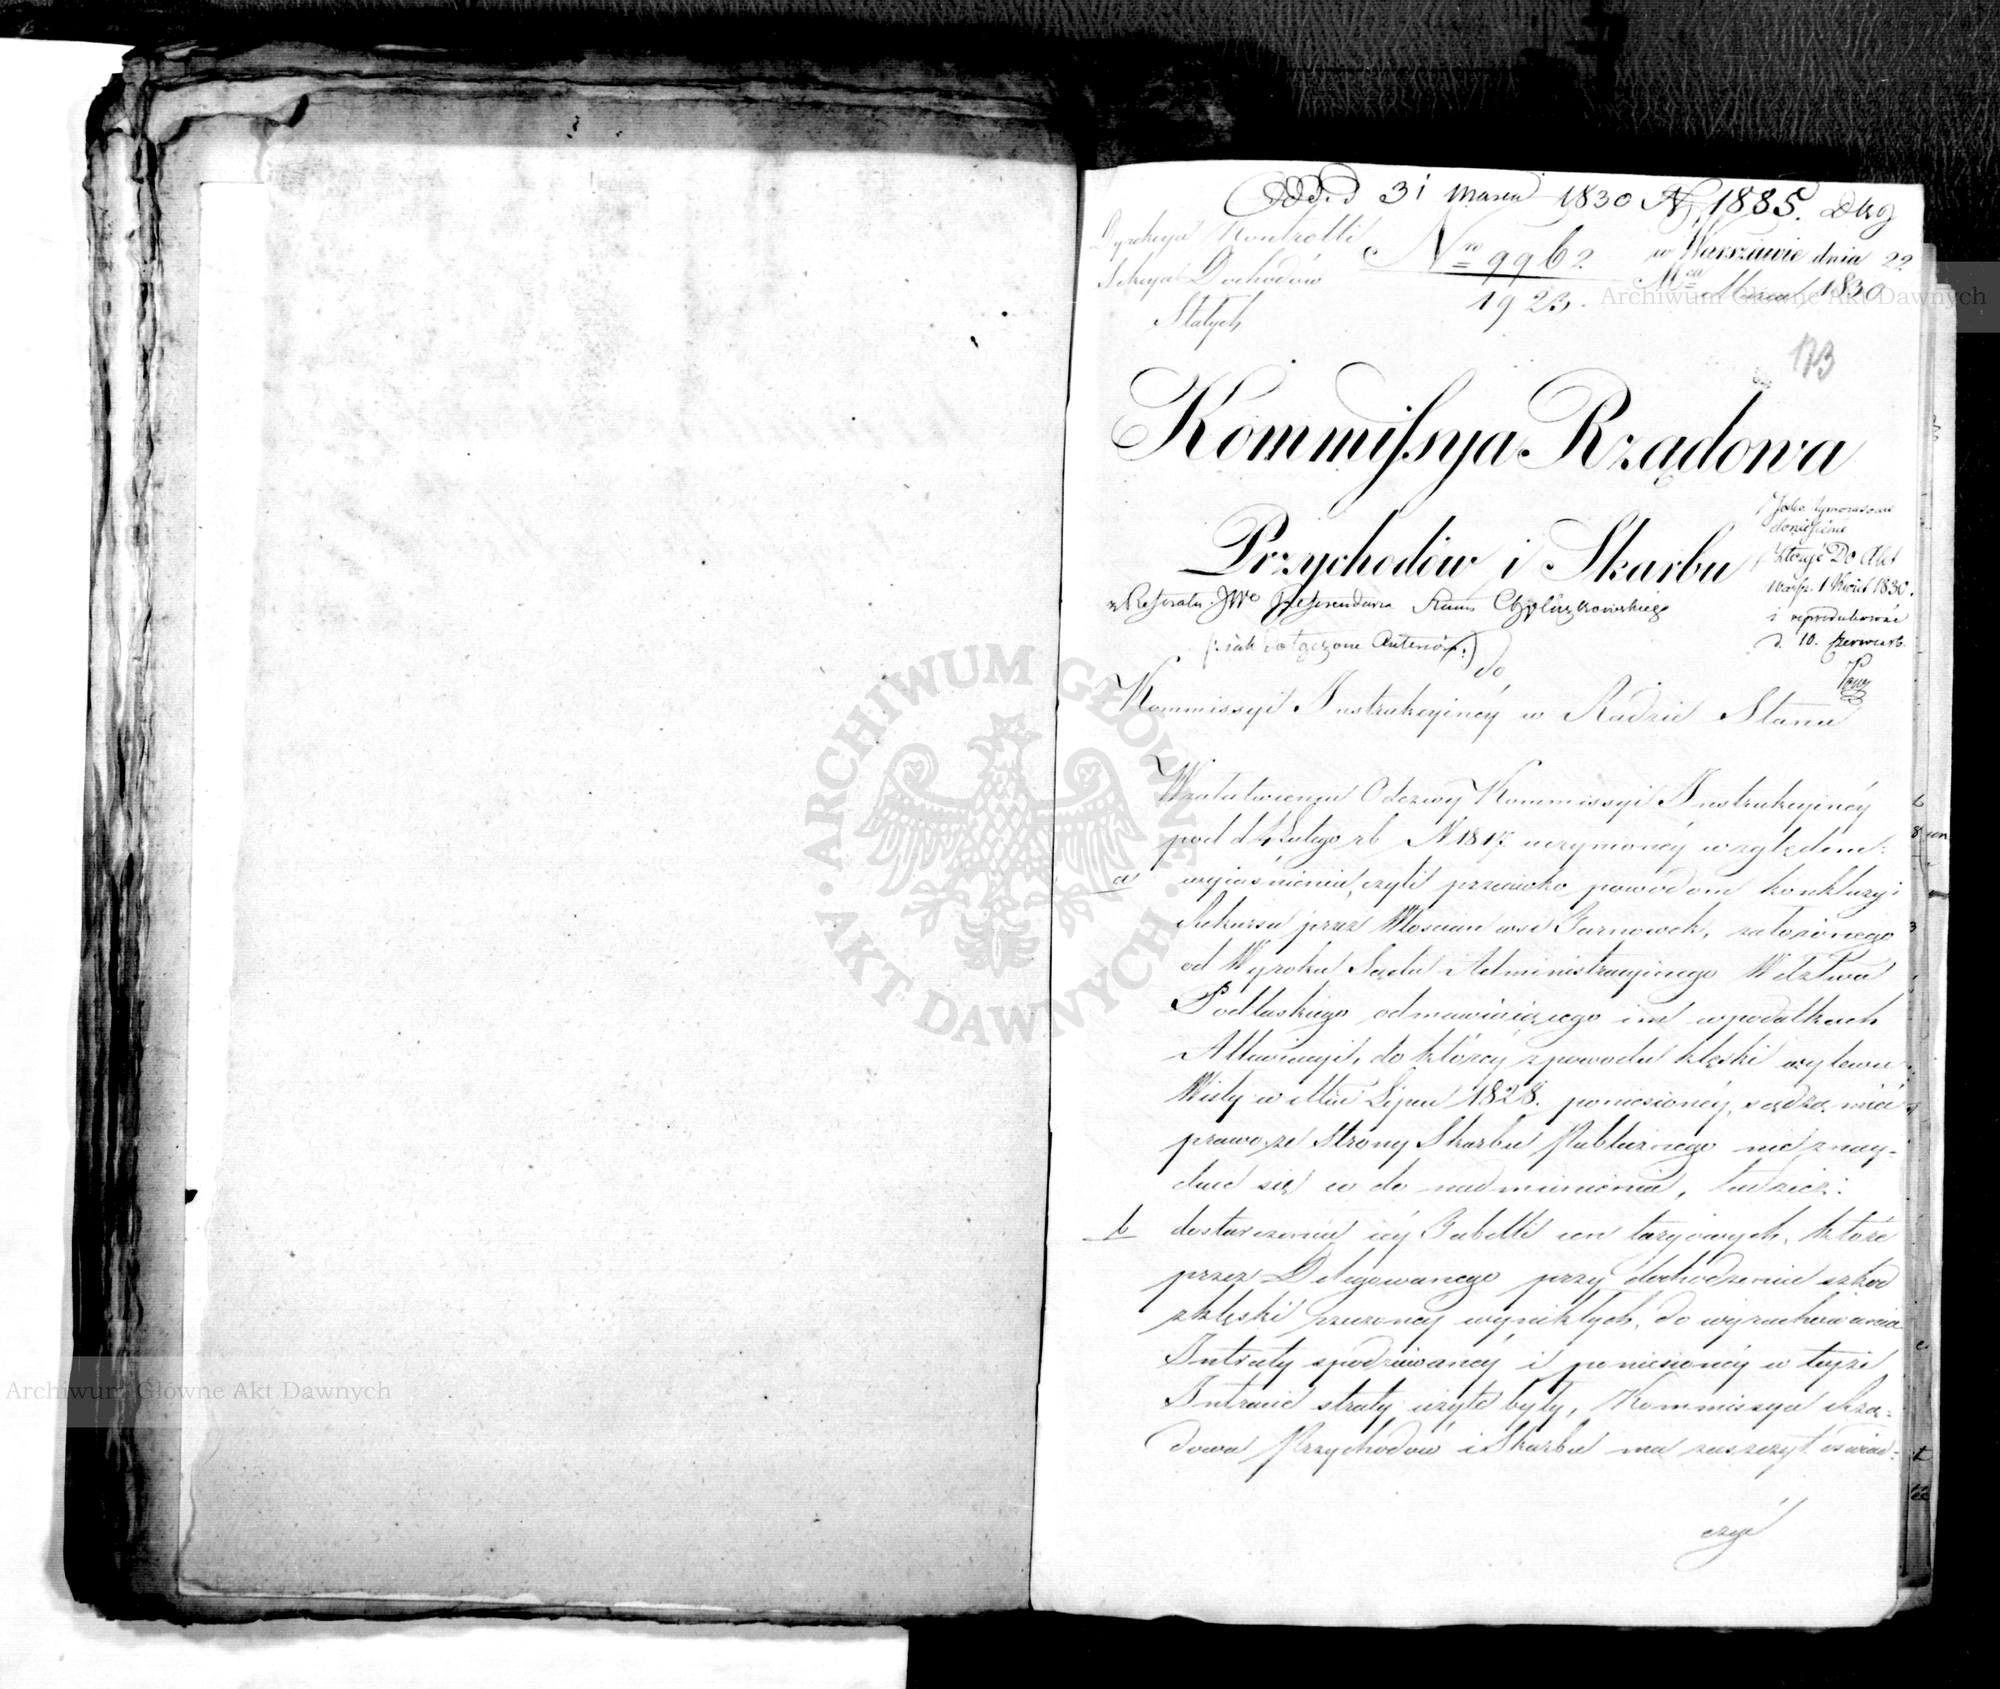 Oddd 31 Marca 1830 N. 1885. Dkg
Dyrekcya Kontrolli
Sekcya Dochodów
Stałych
Nro 9962
1923.
w Warszawie dnia 22
Mca Marca 1830
173
Kommissya Rządowa
Przychodów i Skarbu
Jako tymczasowe
doniesienie
złożyć Do Akt
1 Kwiet 1830.
i reprodukować
d. 10. Czerwca rb.
z Referatu JWo Referendarza Stanu
(: jak dołączone Anteriora :)
do
Kommissyi Instrukcyinéy w Radzie Stanu
W załatwieniu Odezwy Kommissyi Instrukcyinéy
pod d 4 Lutego rb N 1817 uczynionéy względem:
a wyiaśnienia, czyli przeciwko powodom konkluzyi
Rekursu przez Włościan wsi Tarnowek, założonego
od Wyroku Sądu Administracyinego Wdztwa
Podlaskiego odmawiaiącego im w podatkach
Allewiacyi, do któréy z powodu klęski wylewu
Wisły w Mcu Lipcu 1828. poniesionéy, sądzą mieć
prawo, ze strony Skarbu Publicznego nie znay-
duie się co do nadmienienia, tudzież:
b dostarczenia iéy Tabelli cen taxowych, które
przez Delegowanego przy dochodzeniu szkod
z klęski rzeczonéy wynikłych, do wyrachowania
Intraty spodziewanéy i poniesionéy w teyże
Intracie straty użyte były, Kommissya Rzą-
dowa Przychodów i Skarbu ma zaszczyt oświad-
czyć
ARCHIWUM GŁÓWNE AKT DAWNYCH
Archiwum Główne Akt Dawnych
Archiwum Główne Akt Dawnych